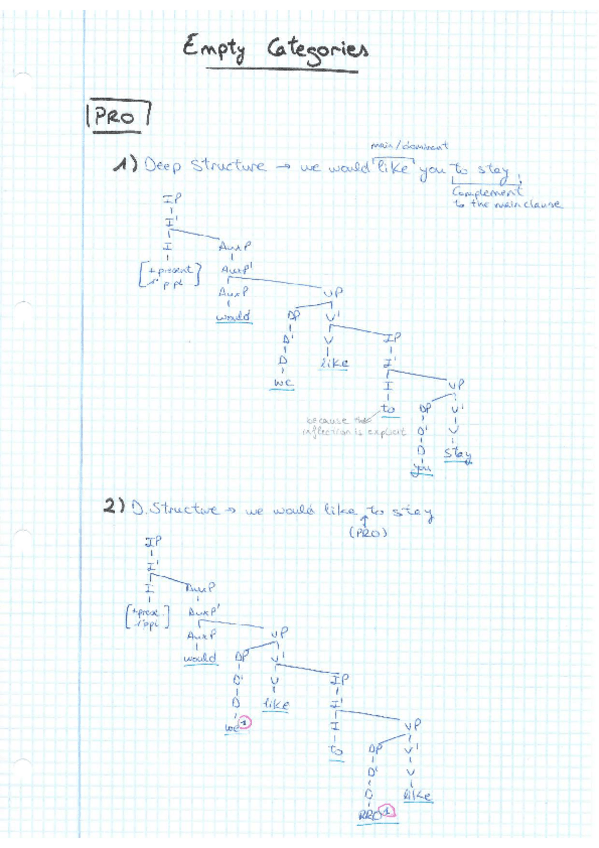 Empty Categories
PRO
main/dominant
1) Deep Structure → we would like you to stay
Complement
to the main clause
IP
I'
I AuxP
[+present AuxP'
AuxP VP
would DP V'
D' V IP
D like I'
we I VP
to DP V'
because the D' V
inflection is explicit D stay
you
2) D. Structure → we would like to stay
(PRO)
IP
I'
I AuxP
AuxP'
AuxP VP
would DP V'
D' V IP
D like I'
we 1 I VP
to DP V'
D' V
D like
PRO 1